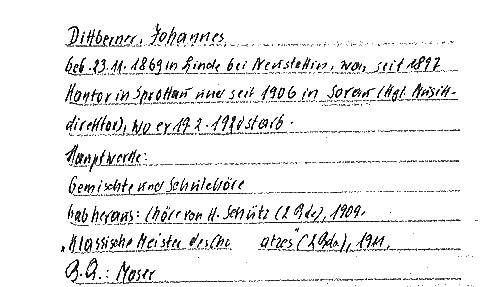 Dittberner, Johannes
geb. 23.11.1869 in Linde bei Neustettin, war seit 1897
Kantor in Sprottau und seit 1906 in Sorau (Kgl. Musik-
direktor), wo er 19.2.1920 starb.
Hauptwerke:
Gemischte und Schülechöre
Gab heraus: Chöre von H. Schütz (2 Bde), 1909.
"Klassische Meister des Cho atzes" (2 Bde), 1911.
B.Q.: Moser